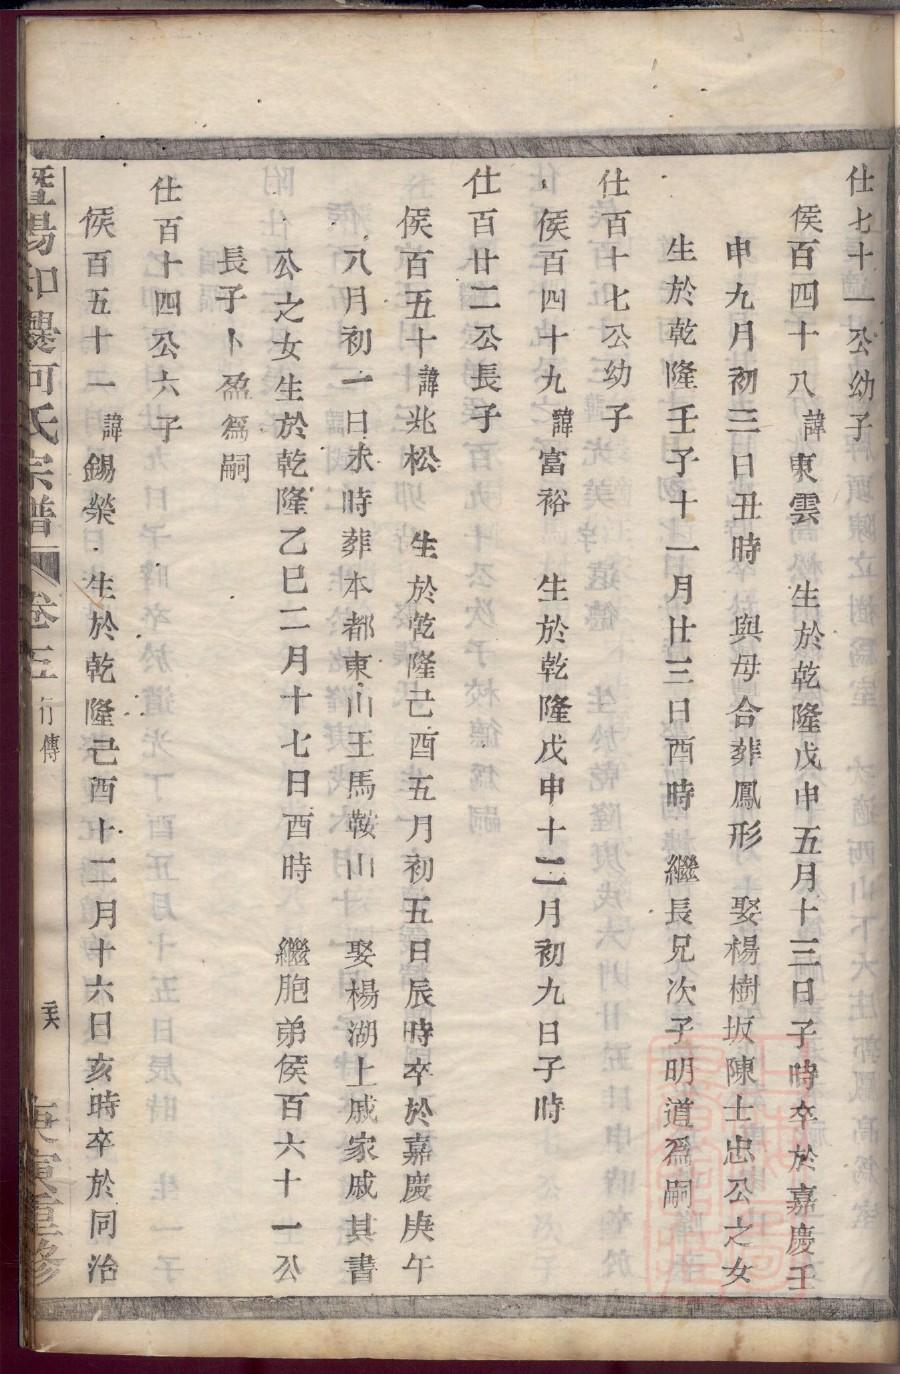 仕七十一公幼子
侯百四十八諱東雲 生於乾隆戊申五月十三日子時卒於嘉慶壬
申九月初三日丑時 與母合葬鳳形 娶楊樹坂陳士忠公之女
生於乾隆壬子十一月廿三日酉時 繼長兄次子明道爲嗣
仕百十七公幼子
侯百四十九諱富裕 生於乾隆戊申十二月初九日子時
仕百廿二公長子
侯百五十諱兆松 生於乾隆己酉五月初五日辰時卒於嘉慶庚午
八月初一日未時葬本都東山王馬鞍山 娶楊湖上戚家戚其書
公之女生於乾隆乙巳二月十七日酉時 繼胞弟侯百六十一公
長子卜盈爲嗣
仕百十四公六子
侯百五十一諱錫榮 生於乾隆己酉十二月十六日亥時卒於同治
暨陽 何氏宗譜 卷三 行傳 庚寅重修